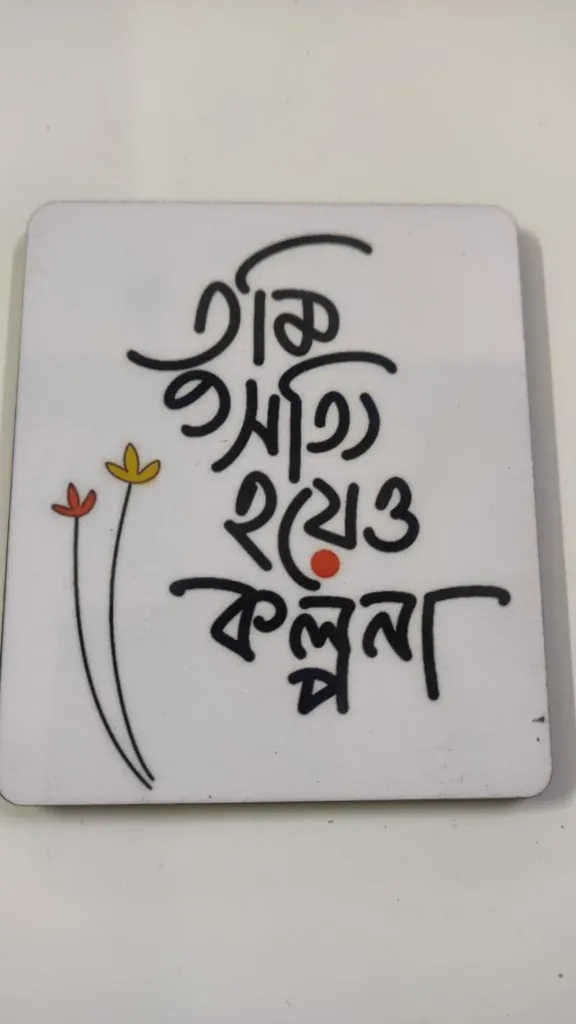 তুমি
সত্যি
হয়েও
কল্পনা